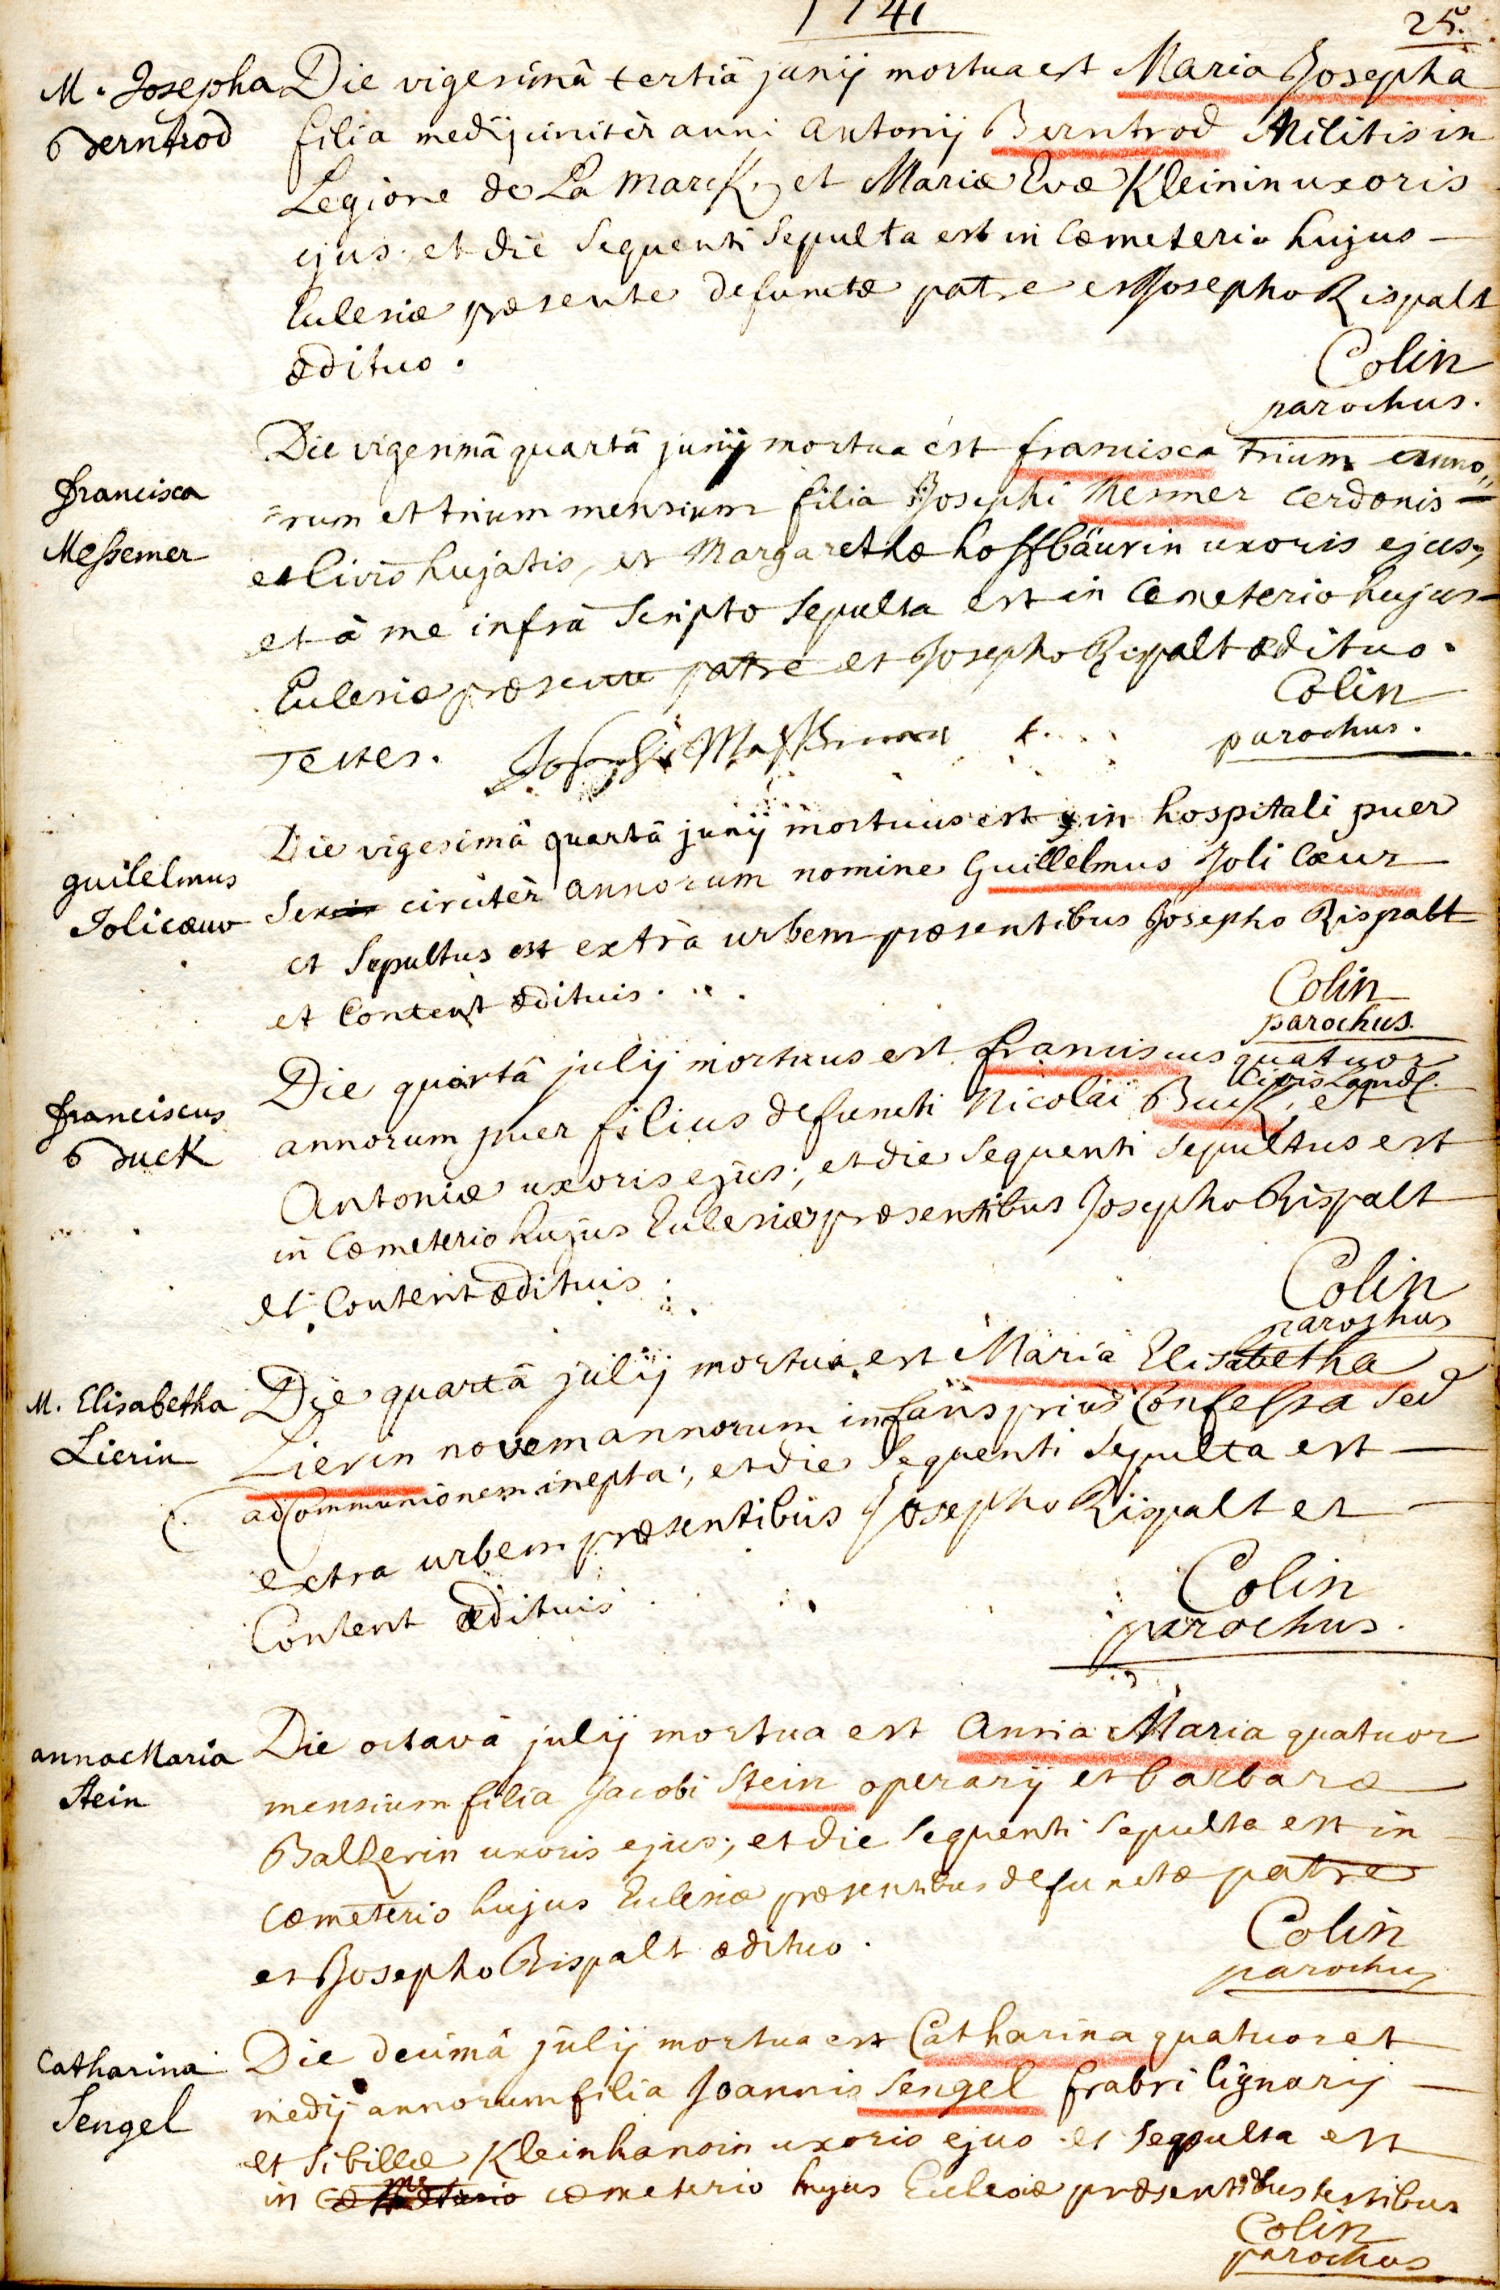 1741
25.
M. Josepha
Berntrod
Die vigesimâ tertiâ junij mortua est Maria Josepha
filia medij circitèr anni Antonij Berntrod Militis in
Legione de La Marck, et Mariæ Evæ Kleinin uxoris
ejus, et die sequenti sepulta est in Cæmeterio hujus
Eclesiæ præsente defunctæ patre et Josepho Rispalt
ædituo.
Colin
parochus.
francisca
Messemer
Die vigesimâ quartâ junij mortua est francisca trium anno
rum et trium mensium filia Josephi Mesmer Cerdonis
et Civis hujatis, et Margarethæ hoffbäurin uxoris ejus,
et à me infrà scripto sepulta est in Cemeterio hujus
Eclesiæ præsente patre et Josepho Rispalt ædituo.
Colin
parochus.
Testes.
guilelmus
Jolicæur
Die vigesimâ quartâ junij mortuus est in hospitali puer
sex circitèr annorum nomine Guillelmus Joli Cœur
et sepultus est extrà urbem præsentibus Josepho Rispalt
et Content ædituis.
Colin
parochus.
franciscus
Buck
Die quartâ julij mortuus est franciscus quatuor
annorum puer filius defuncti Nicolai Buck, et
Antoniæ uxoris ejus; et die sequenti sepultus est
in Cæmeterio hujus Eclesiæ præsentibus Josepho Rispalt
et Content ædituis.
Colin
parochus
M. Elisabetha
Lierin
Die quartâ julij mortua est Maria Elisabetha
Lierin novem annorum infans prius Confessa sed
ad Communionem inepta; et die sequenti sepulta est
extra urbem præsentibus Josepho Rispalt et
Content ædituis
Colin
parochus.
anna Maria
Stein
Die octavâ julij mortua est Anna Maria quatuor
mensium filia Jacobi Stein operarij et barbaræ
Balzerin uxoris ejus; et die sequenti sepulta est in
cæmeterio hujus Eclesiæ præsentibus defunctæ patre
et Josepho Rispalt ædituo.
Colin
parochus
Catharina
Sengel
Die decimâ julij mortua est Catharina quatuor et
medij annorum filia Joannis Sengel frabri lignarij
et Sibillæ Kleinhansin uxoris ejus et sepulta est
in cæmeterio hujus Eclesiæ præsentibus testibus
Colin
parochus